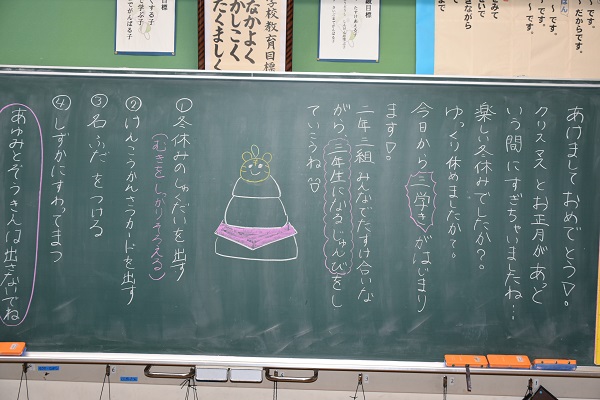 あけましておめでとう♡。
クリスマスとお正月があっと
いう間にすぎちゃいましたね…
楽しい冬休みでしたか?。
ゆっくり休めましたか?。
今日から三学きがはじまり
ます♡。
二年三組みんなでたすけ合いな
がら、三年生になるじゅんびをし
ていこうね
①冬休みのしゅくだいを出す
(むきをしっかりそろえる)
②けんこうかんさつカードを出す
③名ふだをつける
④しずかにすわってまつ
あゆみとぞうきんは出さないでね
学校教育目標
なかよく
かしこく
たくましく